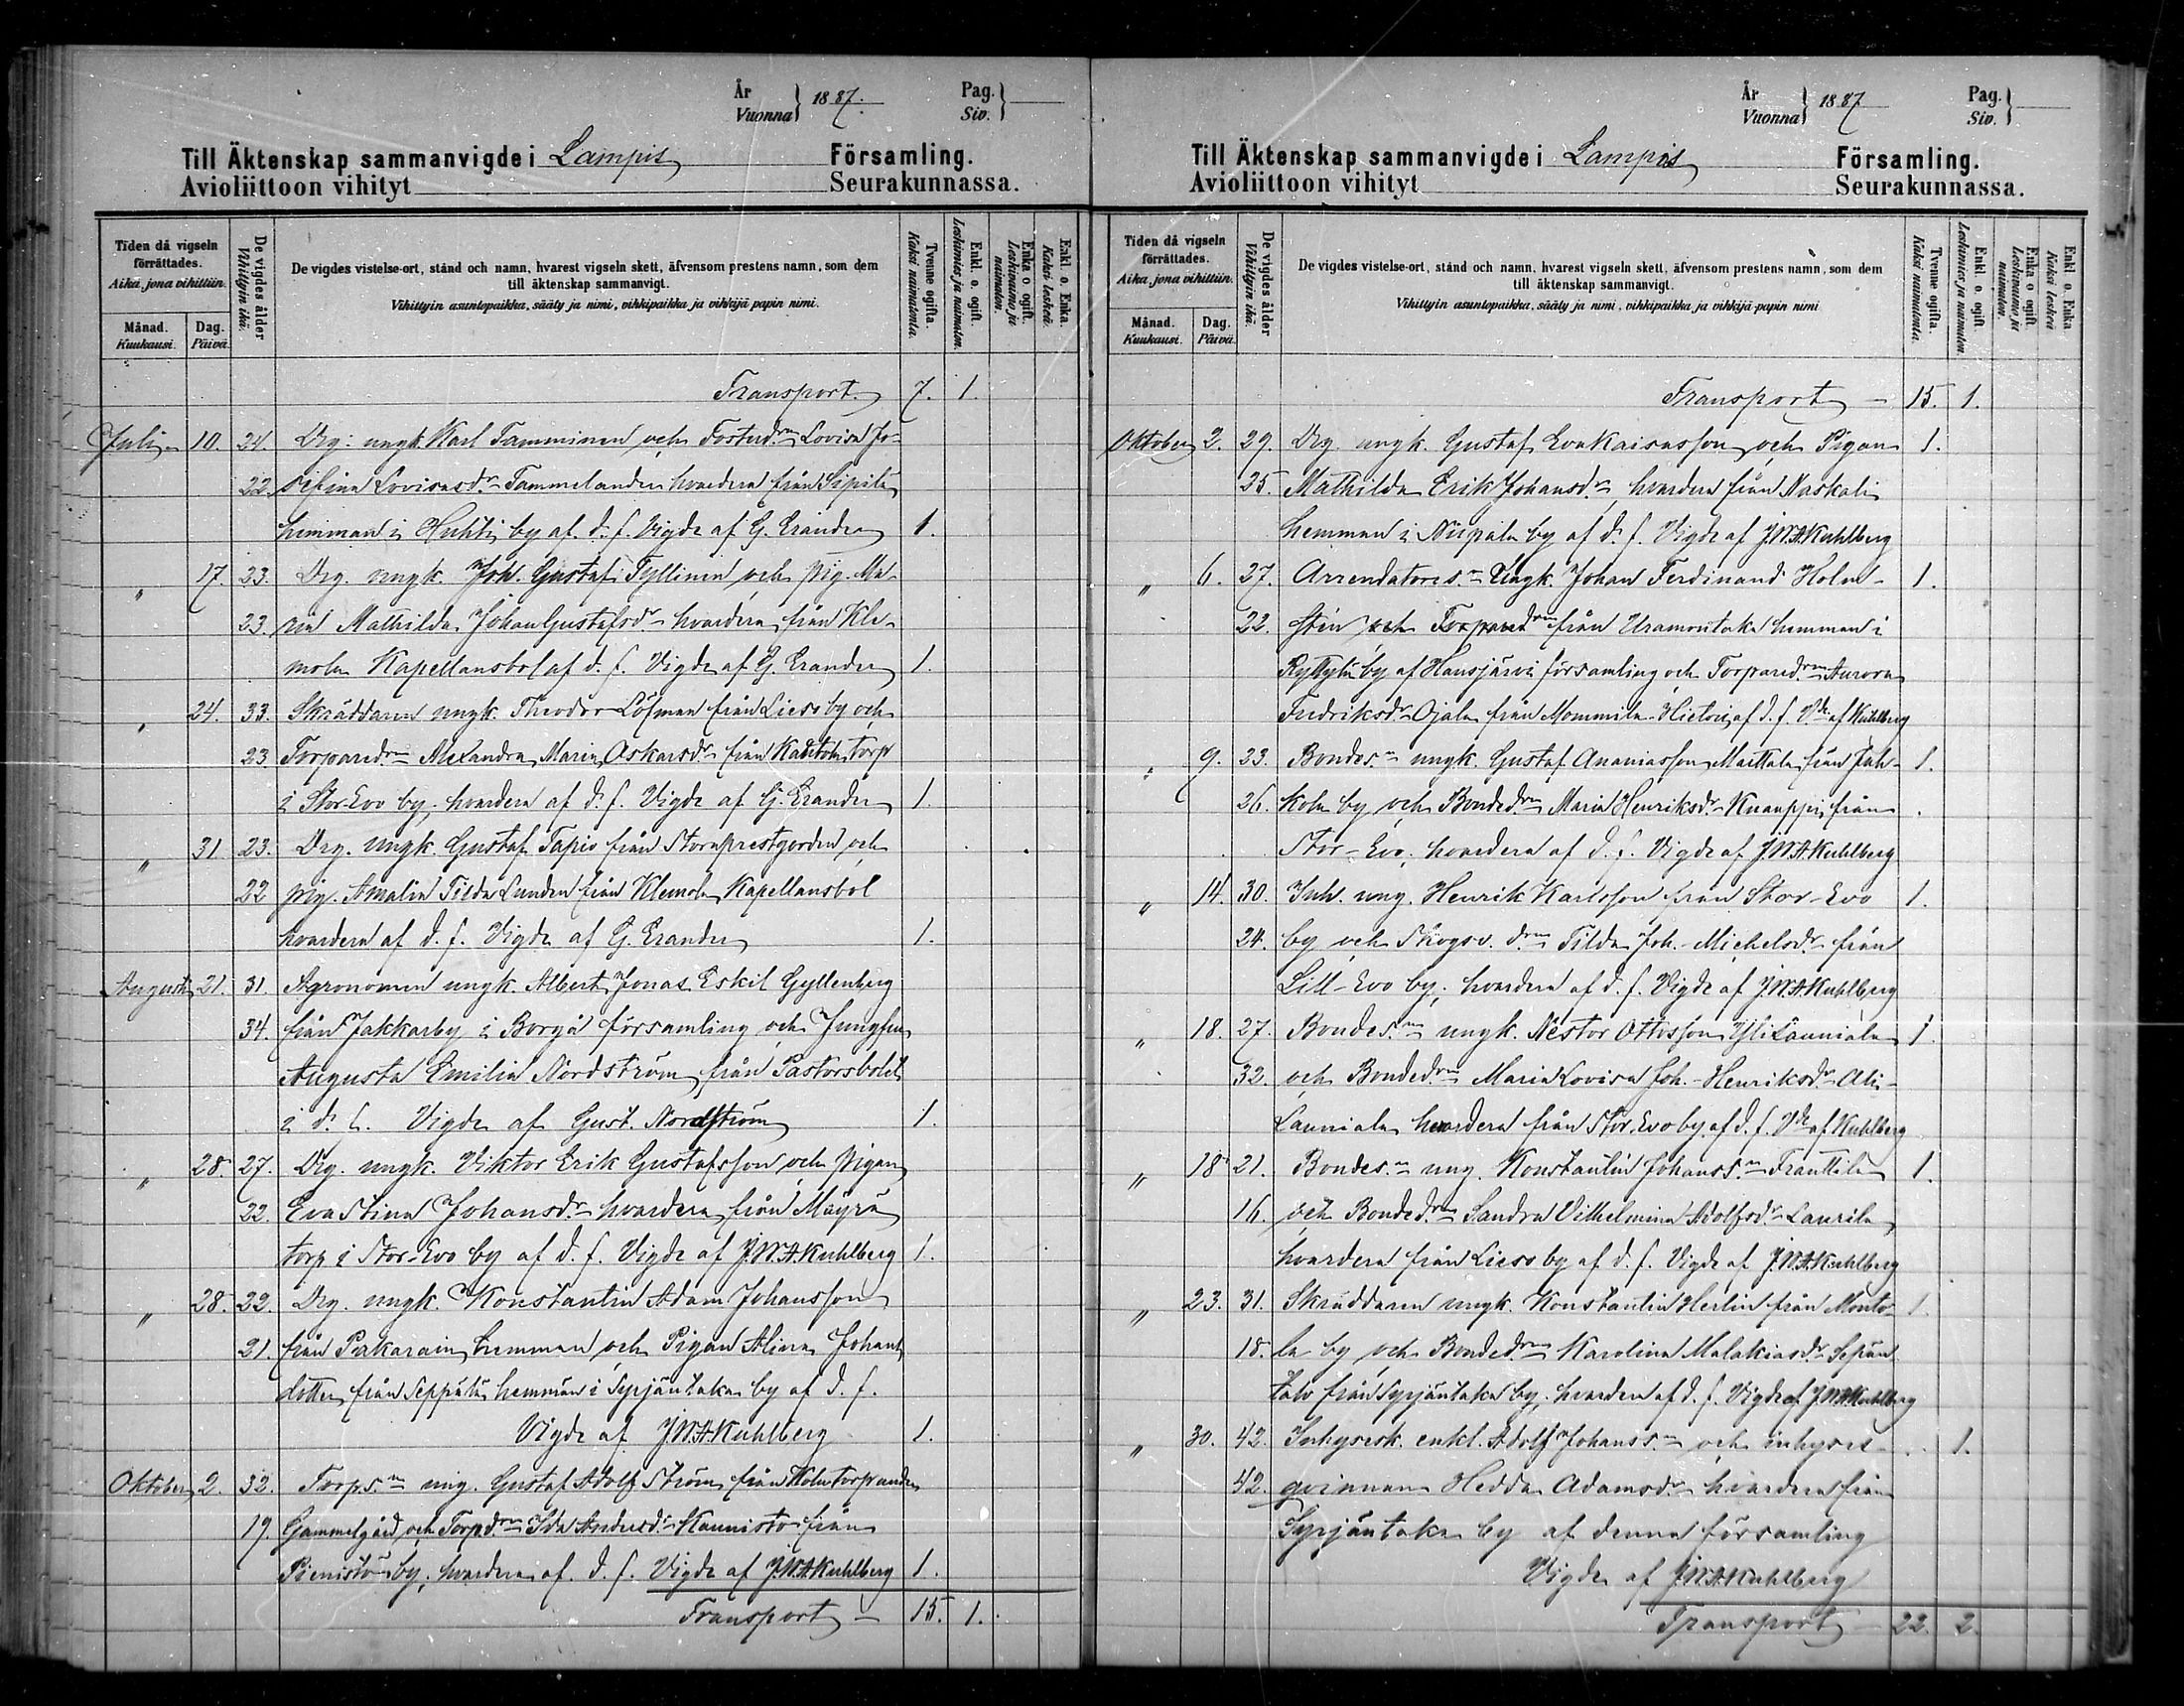 År
Vuonna } 1887.
Pag.
Siv. }
Till Äktenskap sammanvigde i Lampis Församling.
Avioliittoon vihityt Seurakunnassa.
Tiden då vigseln förrättades.
Aika, jona vihittiin.
Månad.
Kuukausi.
Dag.
Päivä.
De vigdes ålder
Vihittyin ikä.
De vigdes vistelse-ort, stånd och namn, hvarest vigseln skett, äfvensom prestens namn, som dem
till äktenskap sammanvigt.
Vihittyin asuntopaikka, sääty ja nimi, vihkipaikka ja vihkijä papin nimi.
Tvenne ogifta.
Kaksi naimatonta.
Enkl. o. ogift.
Leskimies ja naimaton.
Enka o ogift.
Leskivaimo ja naimaton.
Enkl. o. Enka.
Kaksi leskeä.
Transport. 7. 1.
Juli 10. 24. Drg. ungk. Karl Tamminen och Fosterd:rn Lovisa Jo-
22. sefina Lovisasd:r Tammelander hvardera från Sipilä
hemman i Huhti by af d. f. Vigde af G. Erander 1.
" 17. 23. Drg. ungk. Joh. Gustaf Tyllinen och pig. Ma-
23. ria Mathilda Johan Gustafsd:r hvardera från Kle-
mola Kapellansbol af d. f. Vigde af G. Erander 1.
" 24. 33. Skräddaren ungk. Theodor Löfman från Lieso by och
23 Torpared:rn Alexandra Maria Oskarsd:r från torp
i Stor-Evo by, hvardera af d. f. Vigde af G. Erander 1.
" 31 23. Drg. ungk. Gustaf Tapio från Storaprestgorden och
22 pig. Amalia Tilda Lunden från Klemola Kapellansbol
hvardera af d. f. Vigde af G. Erander 1.
Augusti 21. 31. Agronomen ungk. Albert Jonas Eskil Gyllenberg
34. från Jakkarby i Borgå församling och Jungfrun
Augusta Emilia Nordström från Pastorsbolet
i d. f. Vigde af Gust. Nordström 1.
" 28. 27. Drg. ungk. Viktor Erik Gustafsson och pigan
22. Eva Stina Johansd:r hvardera från Mäyrä
torp i Stor-Evo by af d. f. Vigde af J.W.A. Kuhlberg 1.
" 28. 22. Drg. ungk. Konstantin Adam Johansson
21. från Pakarain hemman och Pigan Alina Johans
dotter från Seppälä hemman i Syrjäntaka by af d. f.
Vigde af J.W.A. Kuhlberg 1.
Oktober 2. 32. Torps:n ung. Gustaf Adolf Ström från Kolu torp under
19. Gammelgård och Torpd:rn Ida Andersd:r Kannisto från
by, hvardera af d. f. Vigde af J.W.A. Kuhlberg 1.
Transport 15. 1.
År
Vuonna } 1887
Pag.
Siv. }
Till Äktenskap sammanvigde i Lampis Församling.
Avioliittoon vihityt Seurakunnassa.
Tiden då vigseln förrättades.
Aika, jona vihittiin.
Månad.
Kuukausi.
Dag.
Päivä.
De vigdes ålder
Vihittyin ikä.
De vigdes vistelse-ort, stånd och namn, hvarest vigseln skett, äfvensom prestens namn, som dem
till äktenskap sammanvigt.
Vihittyin asuntopaikka, sääty ja nimi, vihkipaikka ja vihkijä papin nimi
Tvenne ogifta.
Kaksi naimatonta.
Enkl. o. ogift.
Leskimies ja naimaton.
Enka o ogift.
Leskivaimo ja naimaton.
Enkl o. Enka
Kaksi leskeä
Transport 15. 1.
Oktober 2. 29. Drg. ungk. Gustaf Evakaisasson och Pigan 1.
25. Mathilda Erik Johansd:r, hvardera från Naskali
hemman i Nispala by af d. f. Vigde af J.W.A. Kuhlberg
" 6. 27. Arrendators:n Ungk. Johan Ferdinand Holm- 1.
22. sten och Torpared:rn från Uramontaka hemman i
Ryttylä by af Hausjärvi församling och Torpared:rn Aurora
Fredriksd:r Ojala från Mommila-Hietois af d. f. V:de af Kuhlberg
" 9. 23. Bondes:n ungk. Gustaf Ananiasson Maittala från Jah- 1.
26. kola by och Bonded:rn Maria Henriksd:r Knaappi från
Stor-Evo, hvardera af d. f. Vigde af J.W.A. Kuhlberg
" 14. 30. Inh. ung. Henrik Karlsson från Stor-Evo 1.
24. by och Skogsv. d:rn Tilda Joh.-Michelsd:r från
Lill-Evo by, hvardera af d. f. Vigde af J.W.A. Kuhlberg
" 18. 27. Bondes:n ungk. Nestor Ottosson Yli Launiala 1.
32. och Bonded:rn Maria Lovisa Joh.-Henriksd:r Ali-
Launiala hvardera från Stor-Evo by af d. f. V:de af Kuhlberg
" 18 21. Bondes:n ung. Konstantin Johanss:n Franttila 1.
16. och Bonded:rn Sandra Vilhelmina Adolfsd:r Laurila
hvardera från Lieso by af d. f. Vigde af J.W.A. Kuhlberg
" 23. 31. Skräddaren ungk. Konstantin Herlin från Monto- 1.
18. la by och Bonded:rn Karolina Malakiasd:r Sepän
talo från Syrjäntaka by, hvardera af d. f. Vigde af J.W.A. Kuhlberg
" 30. 42. Inhysesk. enkl. Adolf Johanss:n och inhyses- 1.
42. qvinnan Hedda Adamsd:r hvardera från
Syrjäntaka by af denna församling
Vigde af J.W.A. Kuhlberg
Transport 22. 2.